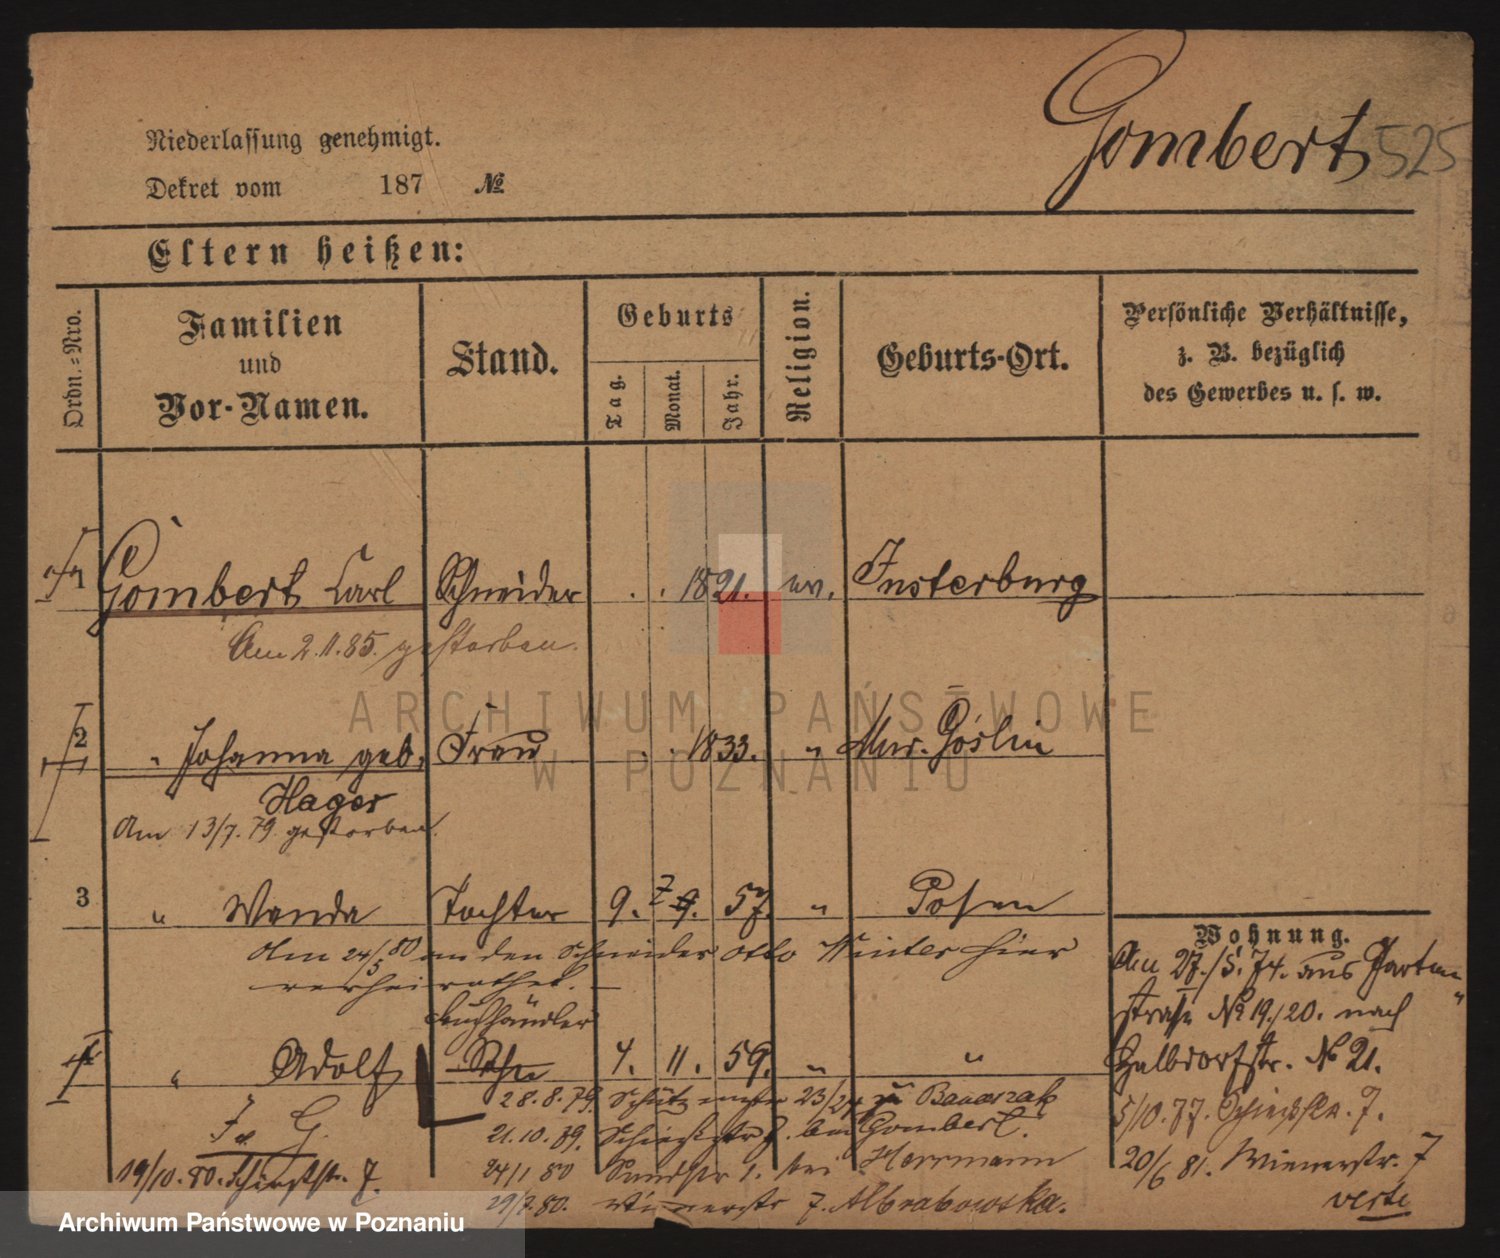 Gombert 525
Niederlassung genehmigt.
Dekret vom 187 №
Eltern heißen:
Ordn.=Nro.
Familien und Vor-Namen.
Stand.
Geburts
Tag.
Monat.
Jahr.
Religion.
Geburts-Ort.
Persönliche Verhältnisse,
z. B. bezüglich
des Gewerbes u. s. w.
1 Gombert Carl Schneider . . 1821. ev. Insterburg
Am 2.11.85. gestorben.
2 " Johanna geb. Frau . . 1833. " Mur. Goslin
Hager
Am 13/7. 79. gestorben.
3 " Wanda Tochter 9. 7 9. 57. " Posen
Am 24/5 80 an den Schneider Otto Winter hier
verheirathet. —
Buchhändler
4 " Adolf Sohn 4. 11. 59. " "
28.8.79. 23/24 Banaszak
21.10.79. Schießstr 7. bei Gombert.
24/1 80 Sandstr 1. bei Herrmann
29/7.80. Wienerstr 7. Albrabowska.
19/10.80. Schießstr. 7.
Wohnung.
Am 27./5. 74. aus Garten-
straße № 19./20. nach
Halbdorfstr. № 21.
5/10. 77. Schießstr. 7.
20/6 81. Wienerstr. 7
verte
ARCHIWUM PAŃSTWOWE
W POZNANIU
Archiwum Państwowe w Poznaniu